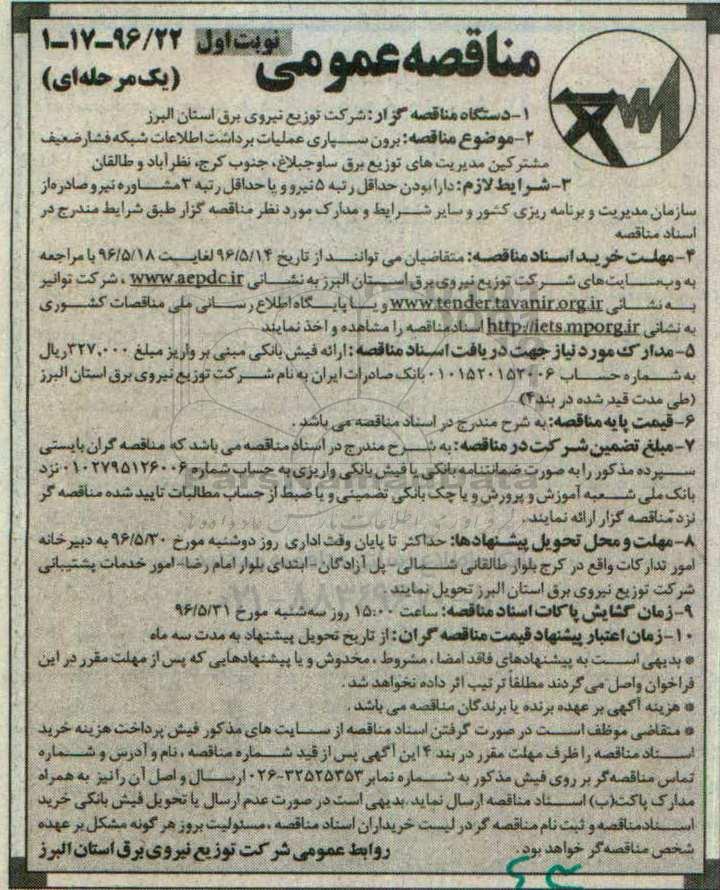 مناقصه عمومی نوبت اول ۹۶/۲۲-۱۷-۱
(یک مرحله‌ای)
۱-دستگاه مناقصه گزار: شرکت توزیع نیروی برق استان البرز
۲-موضوع مناقصه: برون سپاری عملیات برداشت اطلاعات شبکه فشار ضعیف
مشترکین مدیریت های توزیع برق ساوجبلاغ، جنوب کرج، نظرآباد و طالقان
۳-شرایط لازم: دارا بودن حداقل رتبه ۵ نیرو و یا حداقل رتبه ۳ مشاوره نیرو صادره از
سازمان مدیریت و برنامه ریزی کشور و سایر شرایط و مدارک مورد نظر مناقصه گزار طبق شرایط مندرج در
اسناد مناقصه
۴-مهلت خرید اسناد مناقصه: متقاضیان می توانند از تاریخ ۹۶/۵/۱۴ لغایت ۹۶/۵/۱۸ با مراجعه
به وب‌سایت‌های شرکت توزیع نیروی برق استان البرز به نشانی www.aepdc.ir ، شرکت توانیر
به نشانی www.tender.tavanir.org.ir و یا پایگاه اطلاع رسانی ملی مناقصات کشوری
به نشانی http://iets.mporg.ir اسناد مناقصه را مشاهده و اخذ نمایند
۵-مدارک مورد نیاز جهت دریافت اسناد مناقصه: ارائه فیش بانکی مبنی بر واریز مبلغ ۳۲۷,۰۰۰ ریال
به شماره حساب ۰۱۰۱۵۲۰۱۵۲۰۰۶ بانک صادرات ایران به نام شرکت توزیع نیروی برق استان البرز
(طی مدت قید شده در بند ۴)
۶-قیمت پایه مناقصه: به شرح مندرج در اسناد مناقصه می باشد .
۷-مبلغ تضمین شرکت در مناقصه: به شرح مندرج در اسناد مناقصه می باشد که مناقصه گران بایستی
سپرده مذکور را به صورت ضمانتنامه بانکی یا فیش بانکی واریزی به حساب شماره ۰۱۰۲۷۹۵۱۲۶۰۰۶ نزد
بانک ملی شعبه آموزش و پرورش و یا چک بانکی تضمینی و یا ضبط از حساب مطالبات تایید شده مناقصه گر
نزد مناقصه گزار ارائه نمایند.
۸-مهلت و محل تحویل پیشنهادها: حداکثر تا پایان وقت اداری روز دوشنبه مورخ ۹۶/۵/۳۰ به دبیرخانه
امور تدارکات واقع در کرج بلوار طالقانی شمالی- پل آزادگان- ابتدای بلوار امام رضا- امور خدمات پشتیبانی
شرکت توزیع نیروی برق استان البرز تحویل نمایند
۹-زمان گشایش پاکات اسناد مناقصه: ساعت ۱۵:۰۰ روز سه‌شنبه مورخ ۹۶/۵/۳۱
۱۰-زمان اعتبار پیشنهاد قیمت مناقصه گران: از تاریخ تحویل پیشنهاد به مدت سه ماه
* بدیهی است به پیشنهادهای فاقد امضا ، مشروط ، مخدوش و یا پیشنهادهایی که پس از مهلت مقرر در این
فراخوان واصل می گردند مطلقاً ترتیب اثر داده نخواهد شد .
* هزینه آگهی بر عهده برنده یا برندگان مناقصه می باشد .
* متقاضی موظف است در صورت گرفتن اسناد مناقصه از سایت های مذکور فیش پرداخت هزینه خرید
اسناد مناقصه را ظرف مهلت مقرر در بند ۴ این آگهی پس از قید شماره مناقصه ، نام و آدرس و شماره
تماس مناقصه‌گر بر روی فیش مذکور به شماره نمابر ۳۲۵۲۵۳۵۳-۰۲۶ ارسال و اصل آن را نیز به همراه
مدارک پاکت(ب) اسناد مناقصه ارسال نماید. بدیهی است در صورت عدم ارسال یا تحویل فیش بانکی خرید
اسناد مناقصه و ثبت نام مناقصه گر در لیست خریداران اسناد مناقصه ، مسئولیت بروز هر گونه مشکل بر عهده
شخص مناقصه‌گر خواهد بود .
روابط عمومی شرکت توزیع نیروی برق استان البرز